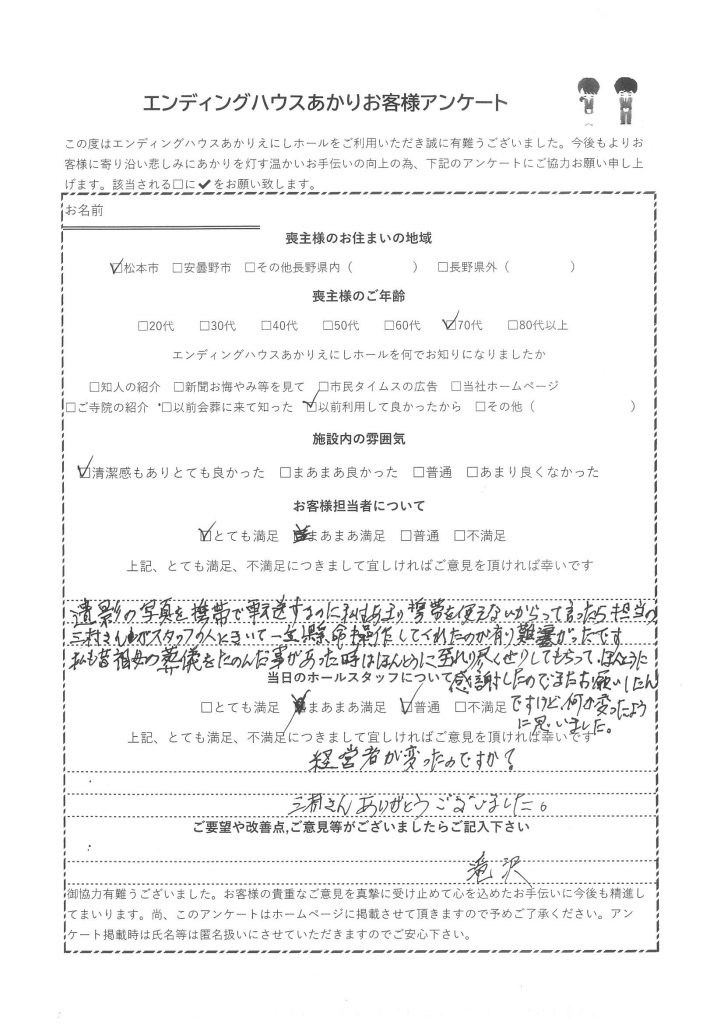 エンディングハウスあかりお客様アンケート
この度はエンディングハウスあかりえにしホールをご利用いただき誠に有難うございました。今後もよりお
客様に寄り沿い悲しみにあかりを灯す温かいお手伝いの向上の為、下記のアンケートにご協力お願い申し上
げます。該当される□に✔をお願い致します。
お名前
喪主様のお住まいの地域
☑松本市 □安曇野市 □その他長野県内（ ） □長野県外（ ）
喪主様のご年齢
□20代 □30代 □40代 □50代 □60代 ☑70代 □80代以上
エンディングハウスあかりえにしホールを何でお知りになりましたか
□知人の紹介 □新聞お悔やみ等を見て □市民タイムスの広告 □当社ホームページ
□ご寺院の紹介 □以前会葬に来て知った ☑以前利用して良かったから □その他（ ）
施設内の雰囲気
☑清潔感もありとても良かった □まあまあ良かった □普通 □あまり良くなかった
お客様担当者について
☑とても満足 まあまあ満足 □普通 □不満足
上記、とても満足、不満足につきまして宜しければご意見を頂ければ幸いです
遺影の写真を携帯で転送するのに私もあまり携帯を使えないからって言ったら担当の
三村さんがスタッフの人ときいて一生懸命操作してくれたのが有り難かったです
私も昔祖母の葬儀をたのんだ事があった時はほんとうに至れり尽くせりしてもらって、ほんとうに
感謝したのでまたお願いしたん
ですけど、何か変ったよう
に思いました。
当日のホールスタッフについて
□とても満足 まあまあ満足 ☑普通 □不満足
上記、とても満足、不満足につきまして宜しければご意見を頂ければ幸いです
経営者が変ったのですか？
三村さんありがとうございました。
ご要望や改善点,ご意見等がございましたらご記入下さい
滝沢
御協力有難うございました。お客様の貴重なご意見を真摯に受け止めて心を込めたお手伝いに今後も精進し
てまいります。尚、このアンケートはホームページに掲載させて頂きますので予めご了承ください。アン
ケート掲載時は氏名等は匿名扱いにさせていただきますのでご安心下さい。